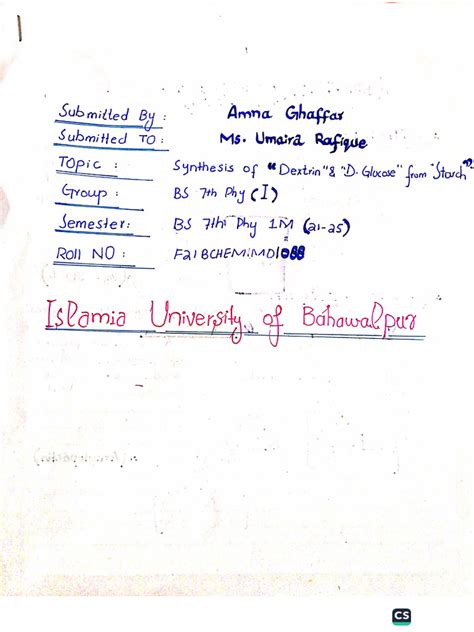 Submitted By : Amna Ghaffar
Submitted TO : Ms. Umaira Rafique
Topic : Synthesis of "Dextrin" & "D. Glucose" from "Starch"
Group : BS 7th Phy (I)
Semester: BS 7th Phy 1M (21-25)
Roll NO : F21BCHEM1M01088
Islamia University of Bahawalpur
CS